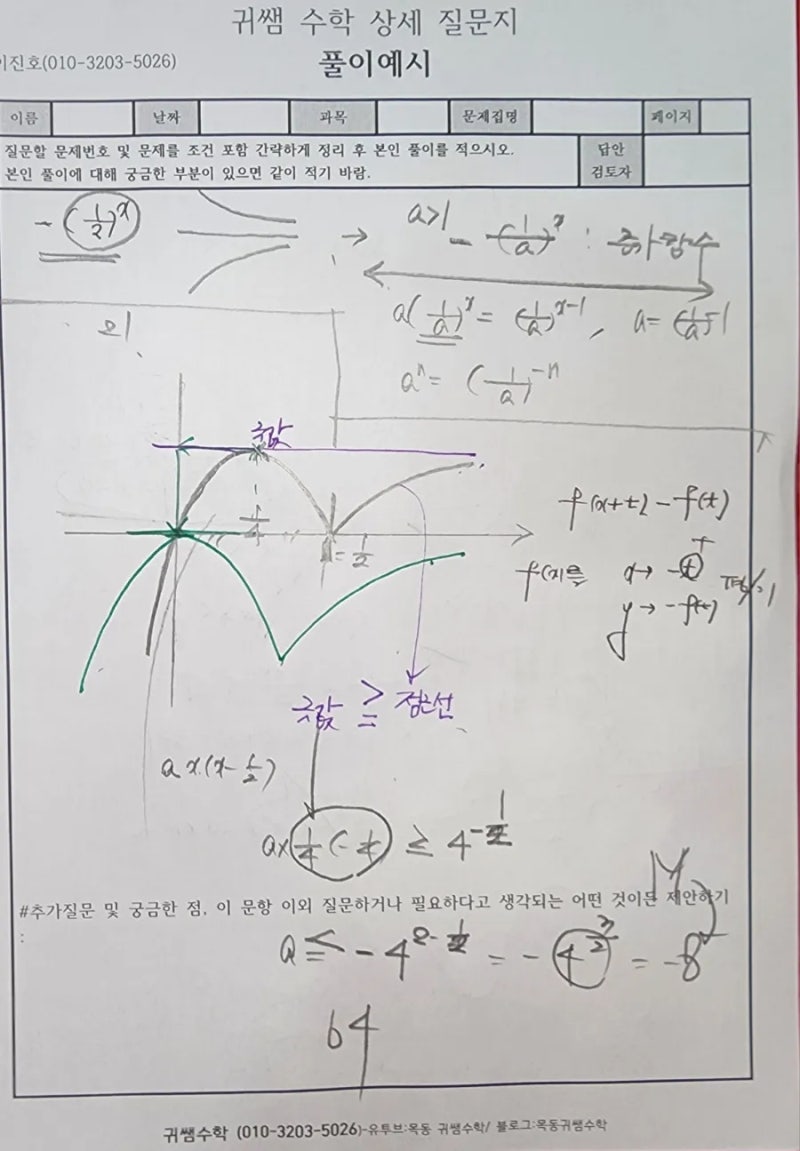 귀쌤 수학 상세 질문지
이진호(010-3203-5026)
풀이예시
이름 날짜 과목 문제집명 페이지
질문할 문제번호 및 문제를 조건 포함 간략하게 정리 후 본인 풀이를 적으시오.
본인 풀이에 대해 궁금한 부분이 있으면 같이 적기 바람.
답안
검토자
-(1/2)^x → a>1 -(1/a)^x : 증가함수
a(1/a)^x = (1/a)^{x-1}, a=(1/a)^{-1}
a^n = (1/a)^{-n}
극값
1/4
=1/2
f(x+t)-f(t)
f(x)를 x→ -t
y→ -f(t)
극값 ≥ 점근선
ax(x-1/2)
a×1/4(-1/4) ≥ 4^{-1/2}
#추가질문 및 궁금한 점, 이 문항 이외 질문하거나 필요하다고 생각되는 어떤 것이든 제안하기
:
a ≤ -4^{2-1/2} = -4^{3/2} = -8
64
귀쌤수학 (010-3203-5026)-유투브:목동 귀쌤수학/ 블로그:목동귀쌤수학